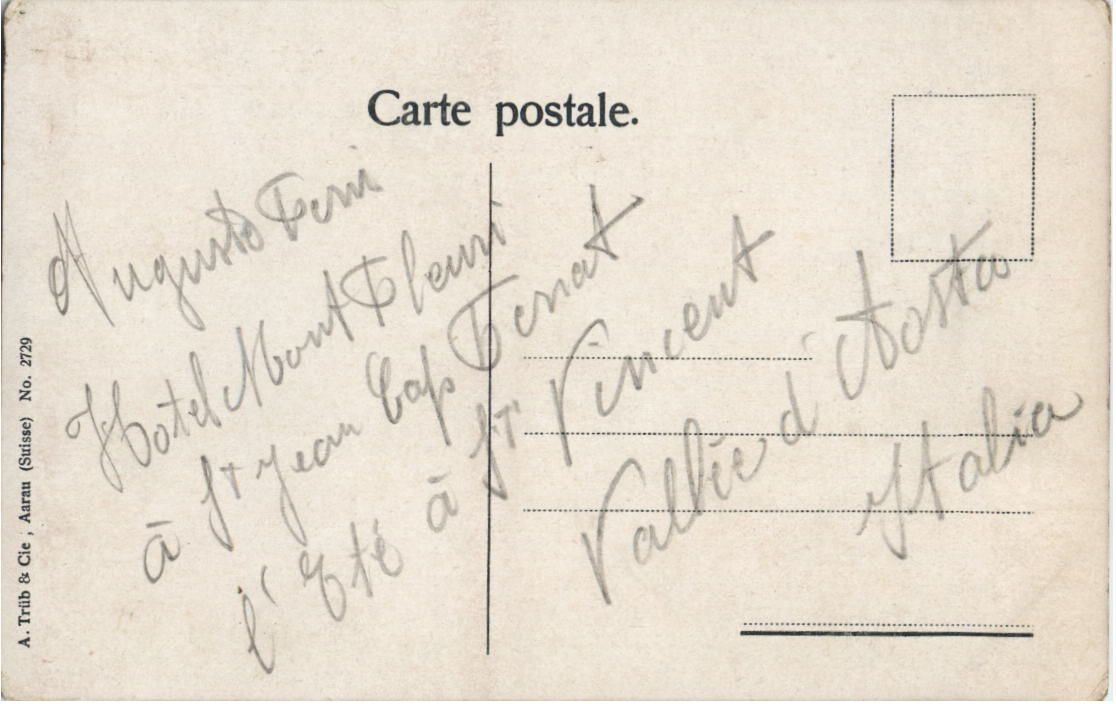 Carte postale.
Augusto
Hotel Mont Fleuri
à St Jean Cap Ferrat
l'Eté à St Vincent
Vallée d'Aosta
Italia
A. Trüb & Cie, Aarau (Suisse) No. 2729